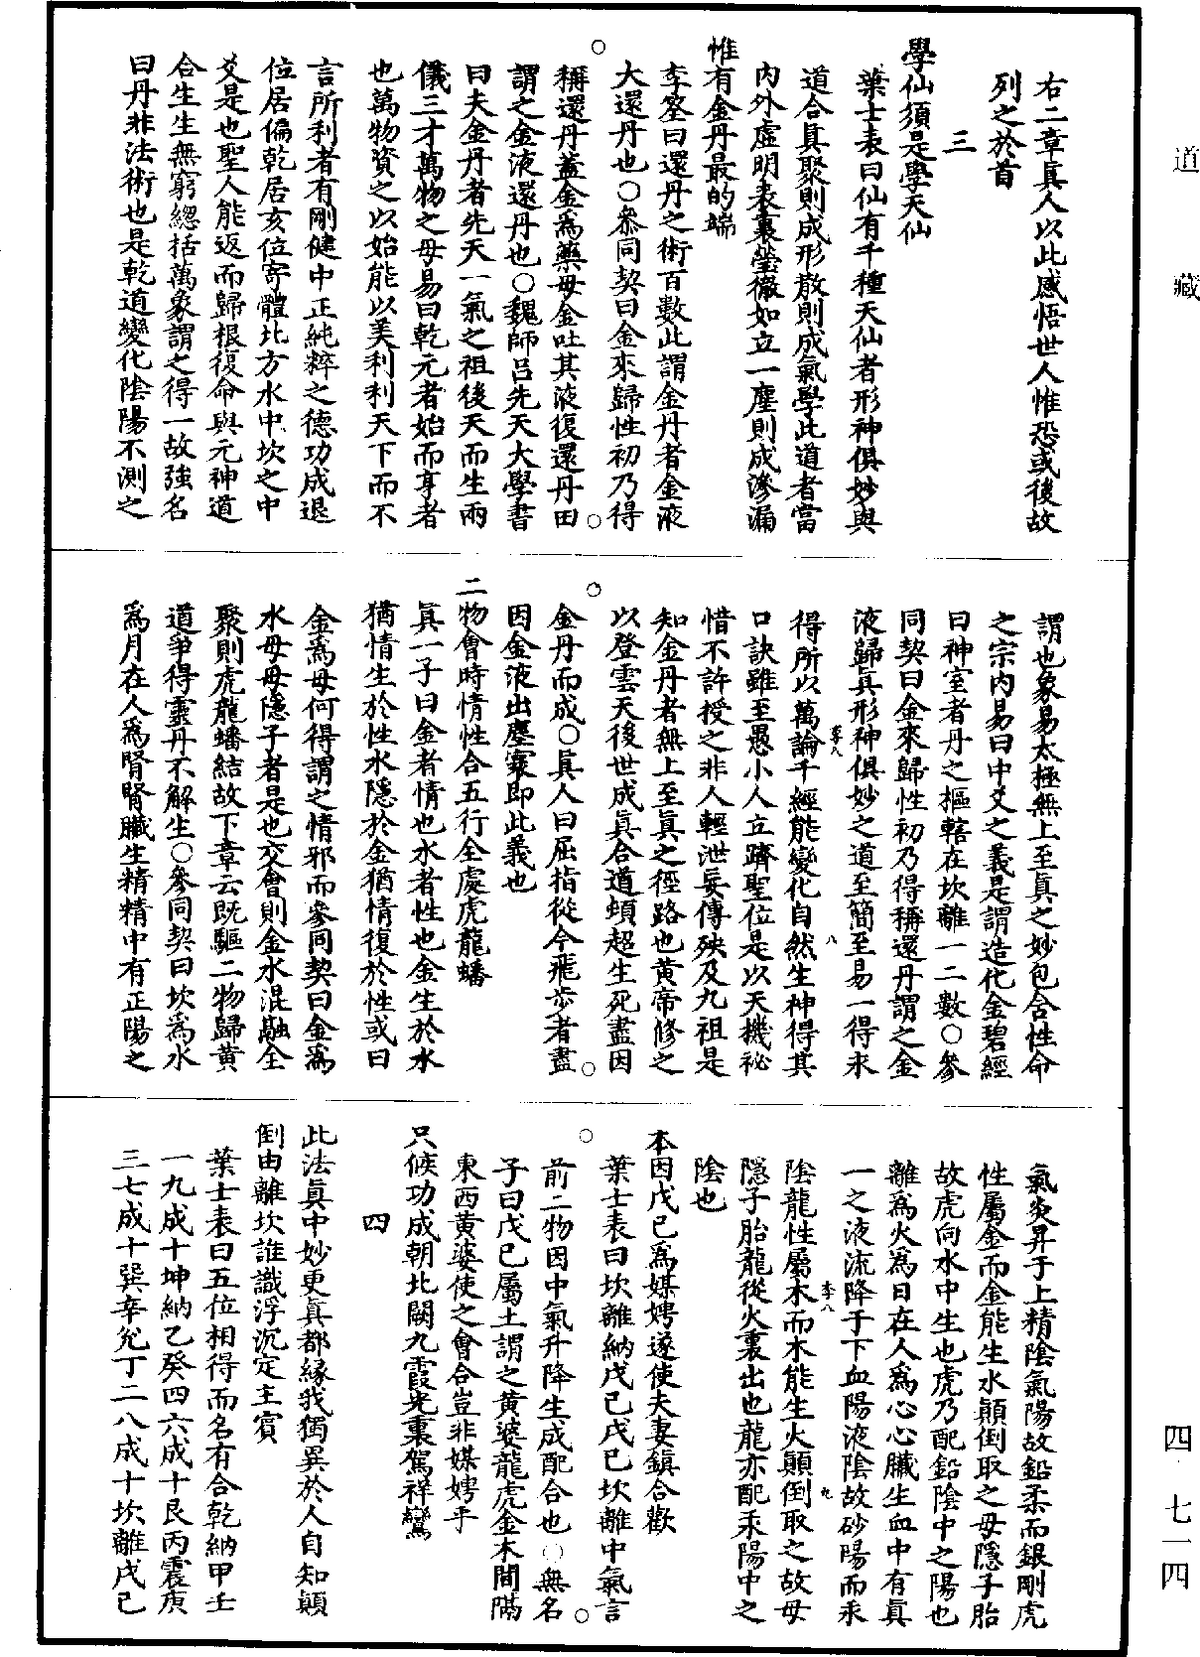 道藏
右二章真人以此感悟世人惟恐或後故
列之於首
三
學仙須是學天仙
葉士表曰仙有千種天仙者形神俱妙與
道合真聚則成形散則成氣學此道者當
內外虛明表裏瑩徹如立一塵則成滲漏
惟有金丹最的端
李筌曰還丹之術百數此謂金丹者金液
大還丹也○參同契曰金來歸性初乃得
稱還丹蓋金為藥母金吐其液復還丹田
謂之金液還丹也○魏師呂先天大學書
曰夫金丹者先天一氣之祖後天而生兩
儀三才萬物之母易曰乾元者始而亨者
也萬物資之以始能以美利利天下而不
言所利者有剛健中正純粹之德功成退
位居偏乾居亥位寄體北方水中坎之中
爻是也聖人能返而歸根復命與元神道
合生生無窮總括萬象謂之得一故強名
曰丹非法術也是乾道變化陰陽不測之
謂也象易太極無上至真之妙包含性命
之宗內易曰中爻之義是謂造化金碧經
曰神室者丹之樞轄在坎離一二數○參
同契曰金來歸性初乃得稱還丹謂之金
液歸真形神俱妙之道至簡至易一得永
得所以萬論千經能變化自然生神得其
口訣雖至愚小人立躋聖位是以天機祕
惜不許授之非人輕泄妄傳殃及九祖是
知金丹者無上至真之徑路也黃帝修之
以登雲天後世成真合道頓超生死盡因
金丹而成○真人曰屈指從今飛步者盡
因金液出塵寰即此義也
二物會時情性合五行全處虎龍蟠
真一子曰金者情也水者性也金生於水
猶情生於性水隱於金猶情復於性或曰
金為母何得謂之情邪而參同契曰金為
水母母隱子者是也交會則金水混融全
聚則虎龍蟠結故下章云既驅二物歸黃
道爭得靈丹不解生○參同契曰坎為水
為月在人為腎腎臟生精精中有正陽之
氣炎昇于上精陰氣陽故鉛柔而銀剛虎
性屬金而金能生水顛倒取之母隱子胎
故虎向水中生也虎乃配鉛陰中之陽也
離為火為日在人為心心臟生血中有真
一之液流降于下血陽液陰故砂陽而汞
陰龍性屬木而木能生火顛倒取之故母
隱子胎龍從火裏出也龍亦配汞陽中之
陰也
本因戊己為媒娉遂使夫妻鎮合歡
葉士表曰坎離納戊己戊己坎離中氣言
前二物因中氣升降生成配合也○無名
子曰戊己屬土謂之黃婆龍虎金木間隔
東西黃婆使之會合豈非媒娉乎
只候功成朝北闕九霞光裏駕祥鸞
四
此法真中妙更真都緣我獨異於人自知顛
倒由離坎誰識浮沉定主賓
葉士表曰五位相得而各有合乾納甲壬
一九成十坤納乙癸四六成十艮丙震庚
三七成十巽辛兌丁二八成十坎離戊己
四·七一四